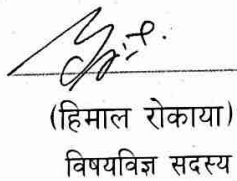 (हिमाल रोकाया)
विषयविज्ञ सदस्य